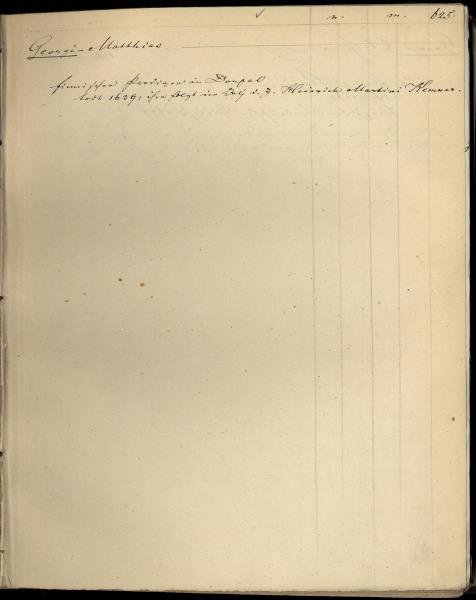 n. m. 625.
Georgi - Matthias
finnischer Prediger in Dorpat
todt 1639; ihm folgt im d. J. Heinrich Martini Kemner.